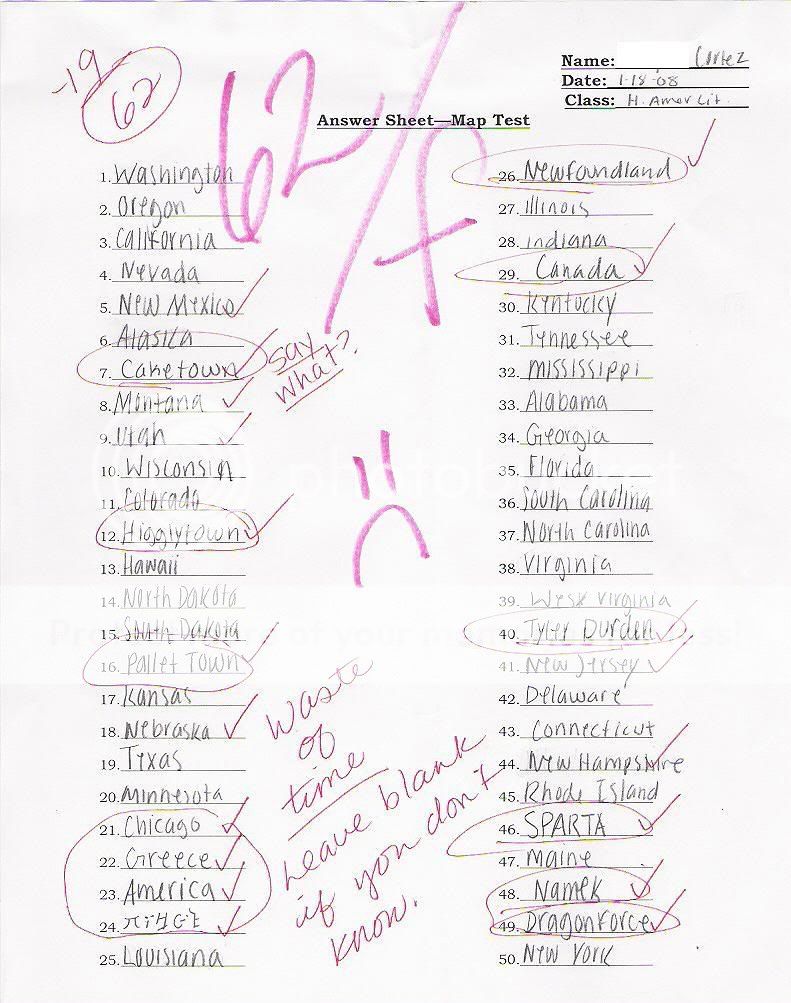 -19
62
62/f
Name: Cortez
Date: 1-18-08
Class: H. Amer Lit.
Answer Sheet—Map Test
1. Washington
2. Oregon
3. California
4. Nevada
5. New Mexico
6. Alaska
7. Caketown
say what?
8. Montana
9. Utah
10. Wisconsin
11. Colorado
12. Higglytown
13. Hawaii
14. North Dakota
15. South Dakota
16. Pallet Town
17. Kansas
18. Nebraska
19. Texas
20. Minnesota
21. Chicago
22. Greece
23. America
24.
25. Louisiana
Waste
of
time
Leave blank
if you don't
know.
26. Newfoundland
27. Illinois
28. indiana
29. Canada
30. Kentucky
31. Tennessee
32. Mississippi
33. Alabama
34. Georgia
35. Florida
36. South Carolina
37. North Carolina
38. Virginia
39. West Virginia
40. Tyler Durden
41. New Jersey
42. Delaware
43. Connecticut
44. New Hampshire
45. Rhode Island
46. SPARTA
47. Maine
48. Namek
49. Dragonforce
50. New York